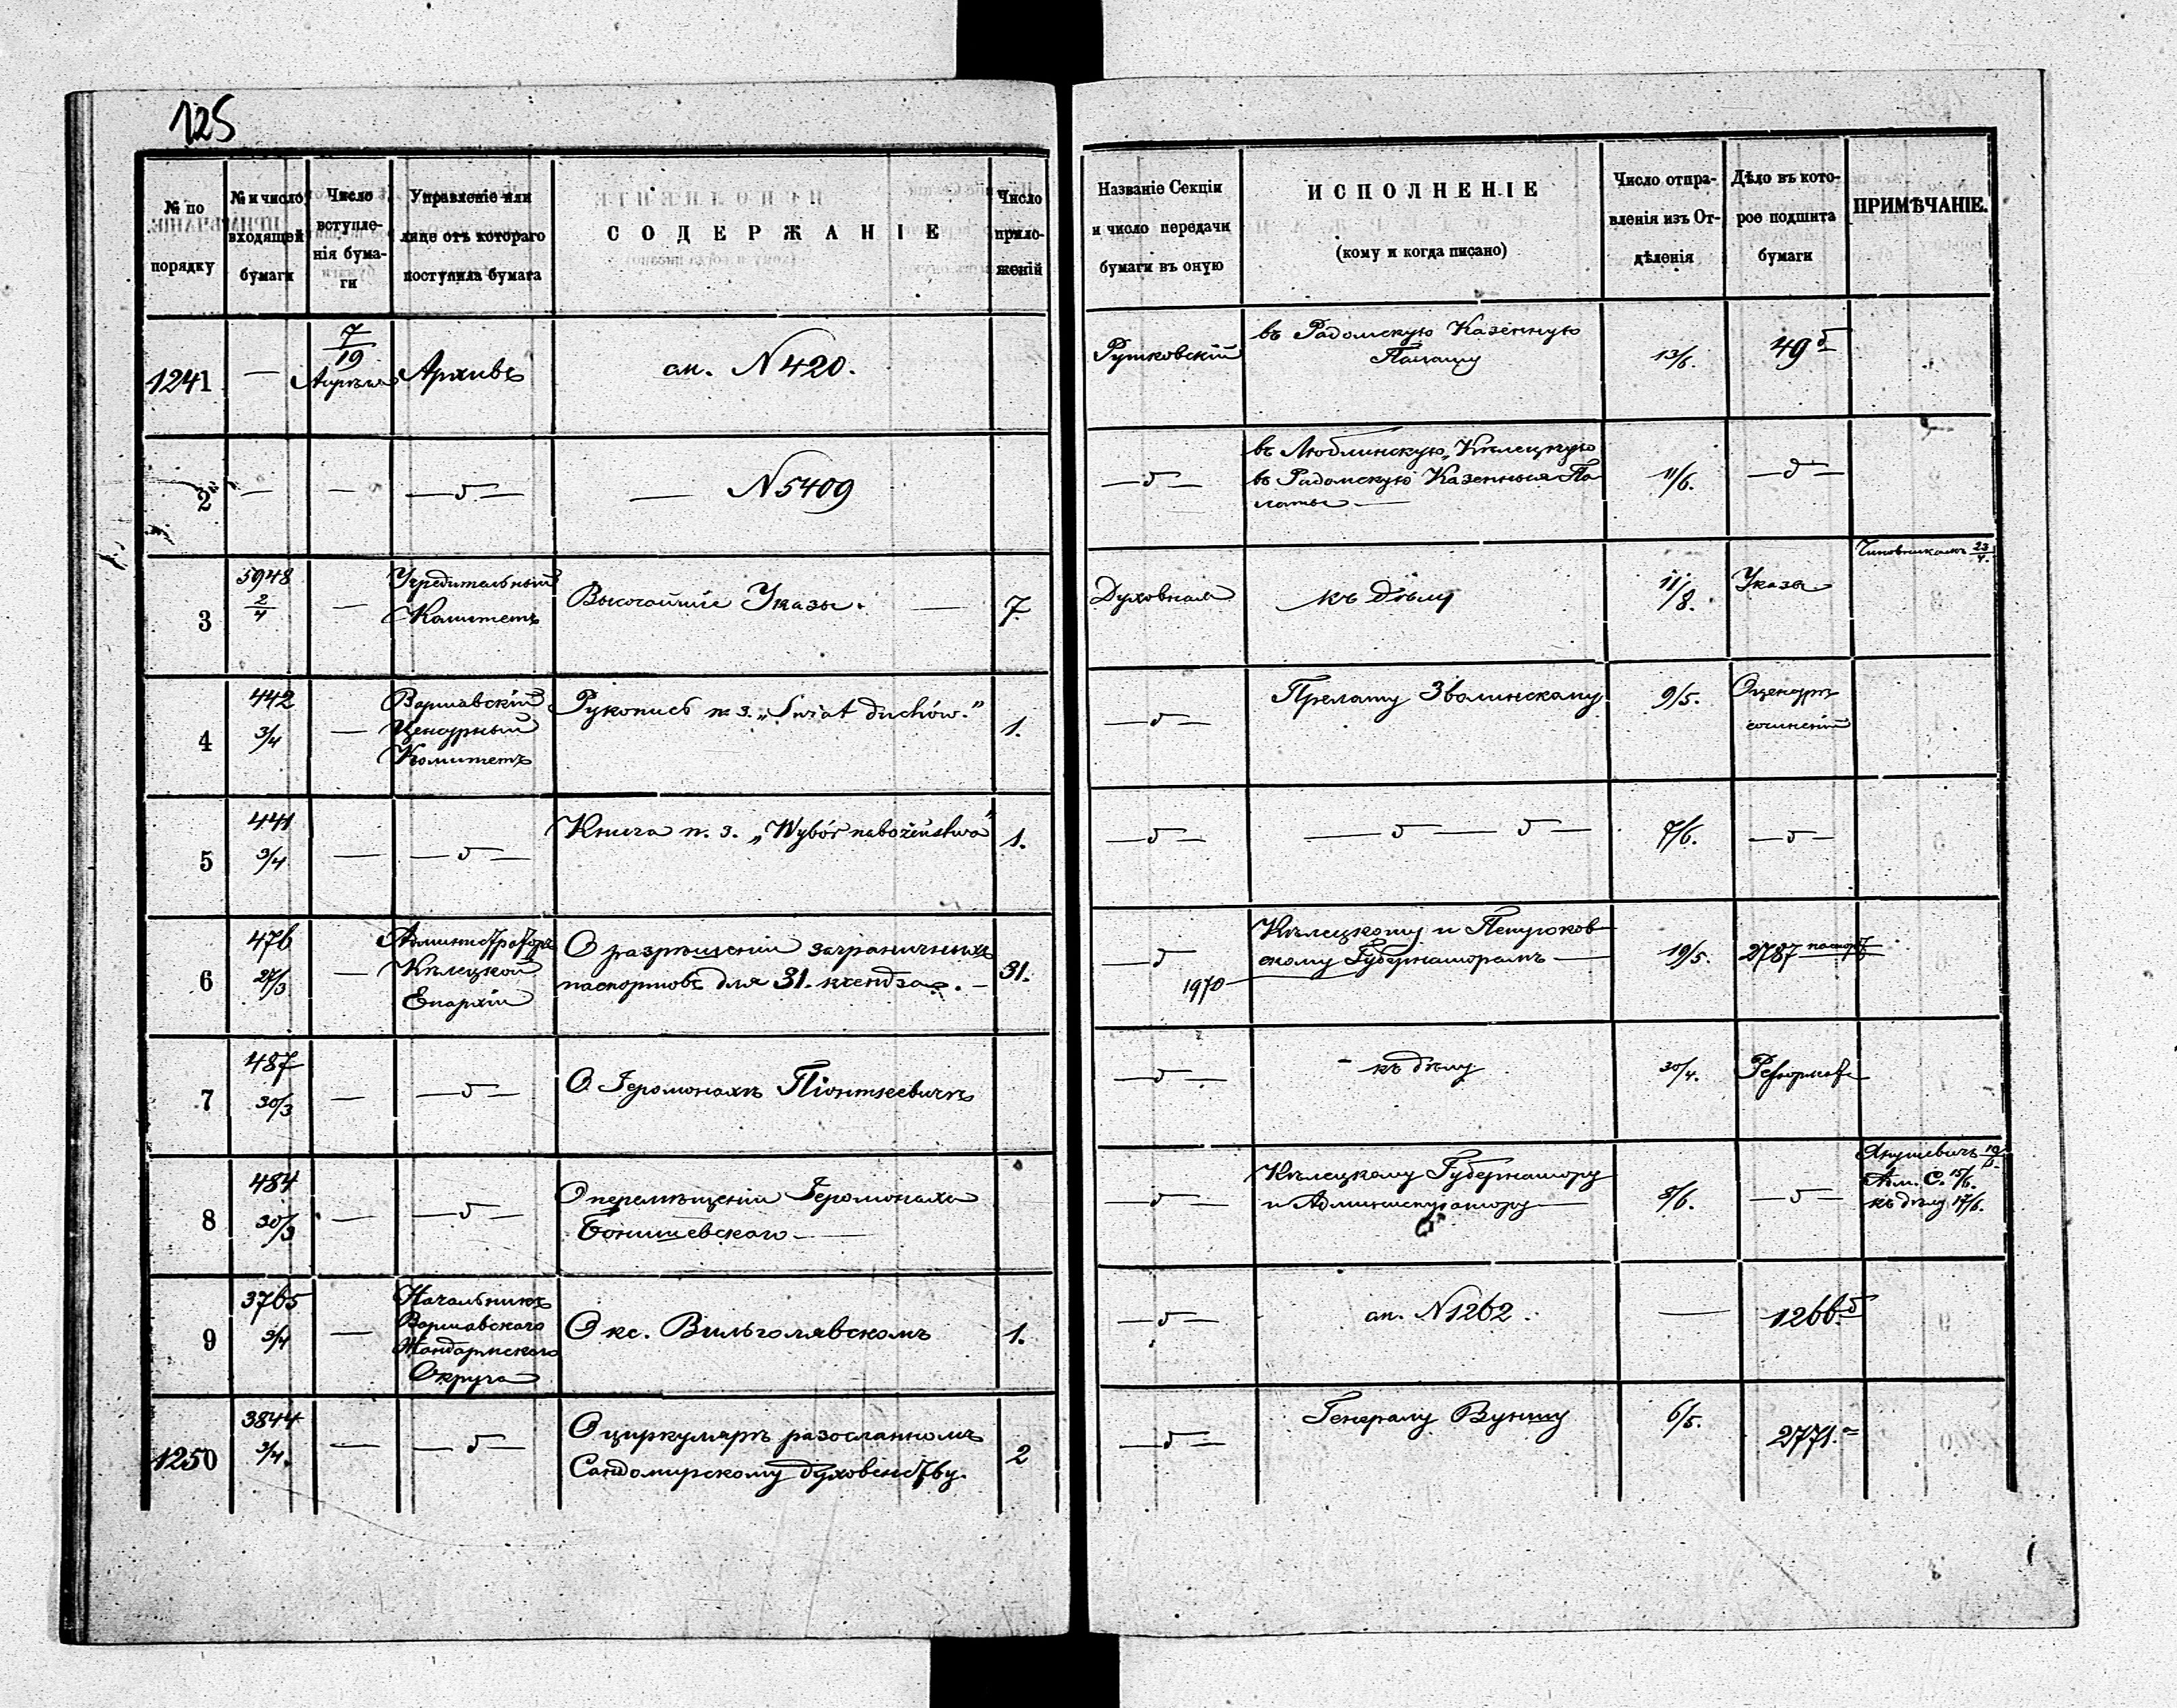 125
№ по порядку | № и число входящей бумаги | Число вступленія бумаги | Управленіе или лице отъ котораго поступила бумага | СОДЕРЖАНІЕ | Число приложеній | Названіе Секціи и число передачи бумаги въ оную | ИСПОЛНЕНІЕ (кому и когда писано) | Число отправленія изъ Отдѣленія | Дѣло въ которое подшита бумаги | ПРИМѢЧАНІЕ.
1241 | — | 7/19 Апрѣля | Архивъ | ап. N 420. | | Рутковскій | въ Радомскую Казенную Палату | 13/6. | 49 б
2 | — | — | — δ — | — N 5409 | | — δ — | въ Люблинскую, Кѣлецкую въ Радомскую Казенныя Палаты — | 11/6. | — δ —
3 | 5948 2/4 | — | Учредительный Комитетъ | Высочайшіе Указы. — | 7. | Духовная | къ дѣлу | 11/8. | Указы | Чиновникамъ 23/4.
4 | 442 3/4 | — | Варшавскій Цензурный Комитетъ | Рукопись п. з. „Swiat duchów." | 1. | — δ — | Прелату Зволинскому | 9/5. | О цензурѣ сочиненій
5 | 441 3/4 | — | — δ — | Книга п. з. „Wybór nabożeństwa" | 1. | — δ — | — δ — δ — | 7/6. | — δ —
6 | 476 27/3 | — | Администраторъ Кѣлецкой Епархіи | О разрѣшеніи заграничныхъ паспортовъ для 31. ксендза. — | 31. | — δ 1970 — | Кѣлецкому и Петроковскому Губернаторамъ — | 19/5. | 2787 паспорт
7 | 487 30/3 | — | — δ — | О Іеромонахѣ Піонткевичѣ | | — δ — | къ дѣлу | 30/4. | Реформаты
8 | 484 30/3 | — | — δ — | О перемѣщеніи Іеромонаха Бонишевскаго — | | — δ — | Кѣлецкому Губернатору и Администратору — | 8/6. | — δ — | Янушевичъ 19/5 Адм. С. 15/6. къ дѣлу 17/6.
9 | 3765 3/4 | — | Начальникъ Варшавскаго Жандармскаго Округа | О кс. Вильголявскомъ | 1. | — δ — | ап. N 1262. | — | 1266. б
1250 | 3844 3/4. | — | — δ — | О циркулярѣ разосланномъ Сандомирскому духовенству. | 2 | — δ — | Генералу Вуншу | 6/5. | 2771. а